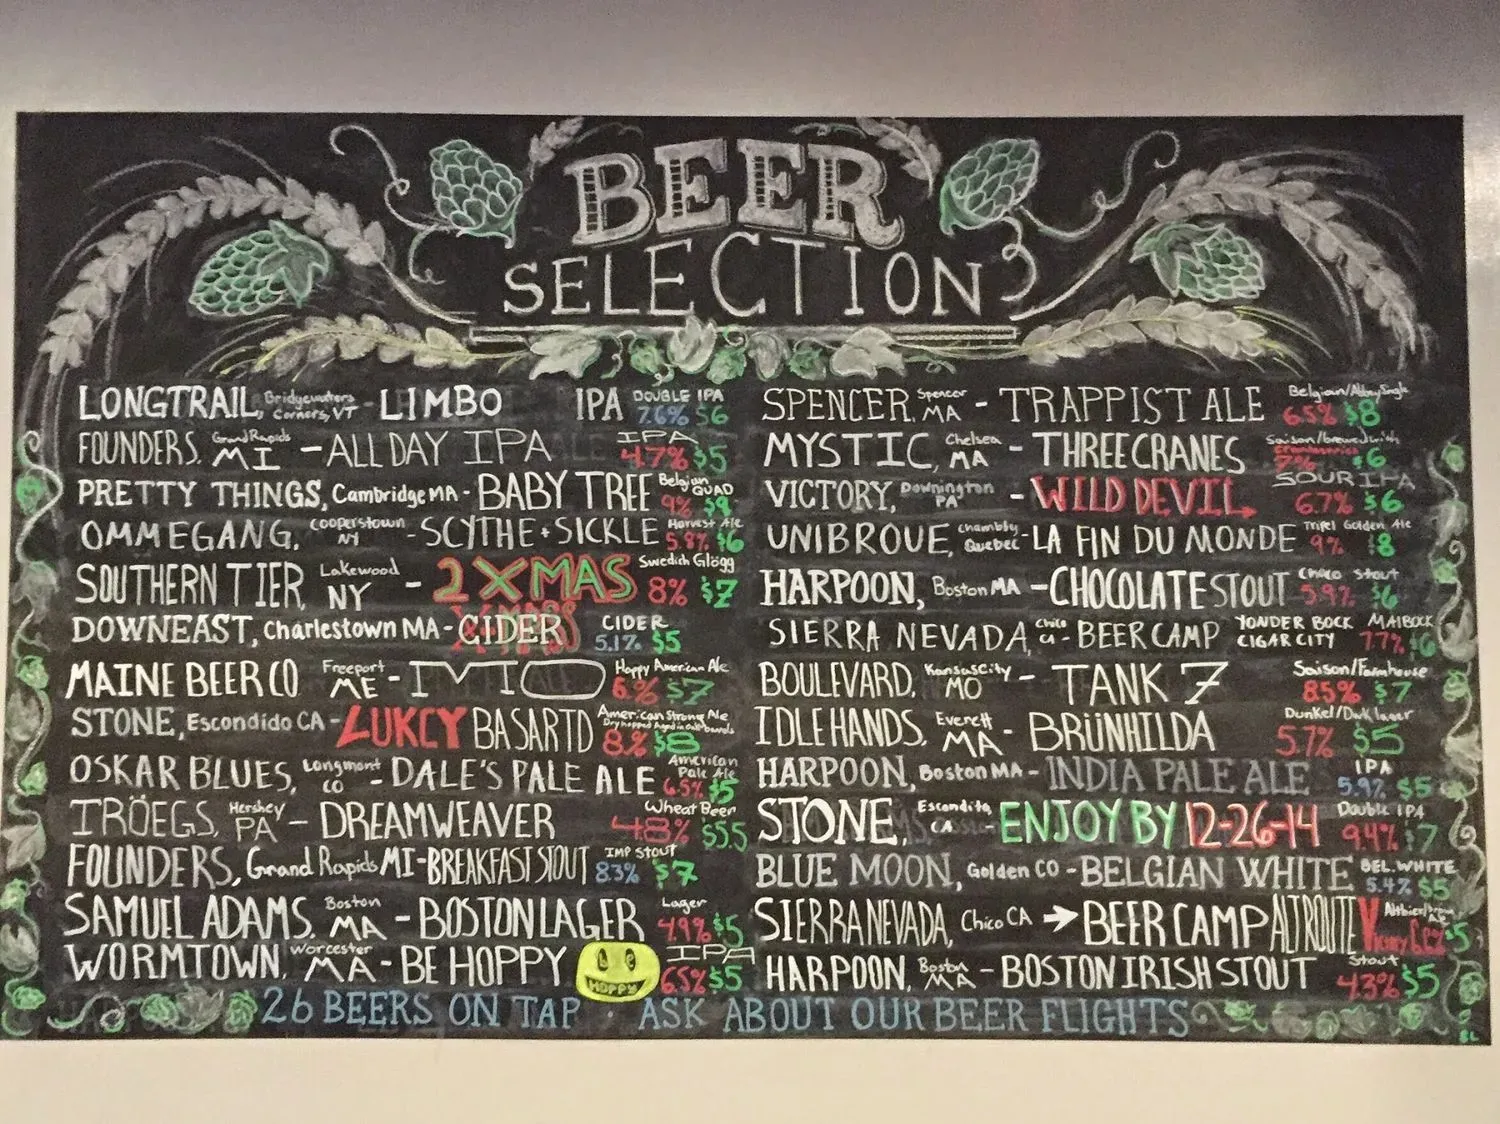 BEER
SELECTION
LONGTRAIL, Bridgewaters Corners, VT - LIMBO IPA DOUBLE IPA 7.6% $6
FOUNDERS, Grand Rapids MI - ALL DAY IPA IPA 4.7% $5
PRETTY THINGS, Cambridge MA - BABY TREE Belgian QUAD 9% $9
OMMEGANG, Cooperstown NY - SCYTHE + SICKLE Harvest Ale 5.8% $6
SOUTHERN TIER, Lakewood NY - 2 XMAS Swedish Glögg 8% $7
DOWNEAST, Charlestown MA - CIDER CIDER 5.1% $5
MAINE BEER CO Freeport ME - MO Hoppy American Ale 6% $7
STONE, Escondido CA - LUKCY BASARTD American Strong Ale 8.% $8
OSKAR BLUES, Longmont CO - DALE'S PALE ALE American Pale Ale 6.5% $5
TRÖEGS, Hershey PA - DREAMWEAVER Wheat Beer 4.8% $5.5
FOUNDERS, Grand Rapids MI - BREAKFAST STOUT IMP STOUT 8.3% $7
SAMUEL ADAMS, Boston MA - BOSTON LAGER Lager 4.9% $5
WORMTOWN, Worcester MA - BE HOPPY HOPPY IPA 6.5% $5
SPENCER, Spencer MA - TRAPPIST ALE Belgian/Abbey Single 6.5% $8
MYSTIC, Chelsea MA - THREE CRANES Saison/brewed with cranberries 7% $6
VICTORY, Downington PA - WILD DEVIL SOUR IPA 6.7% $6
UNIBROUE, Chambly Quebec - LA FIN DU MONDE Tripel Golden Ale 9% $8
HARPOON, Boston MA - CHOCOLATE STOUT Choco Stout 5.9% $6
SIERRA NEVADA, Chico CA - BEER CAMP YONDER BOCK CIGAR CITY MAIBOCK 7.7% $6
BOULEVARD, Kansas City MO - TANK 7 Saison/Farmhouse 8.5% $7
IDLE HANDS, Everett MA - BRÜNHILDA Dunkel/Dark lager 5.7% $5
HARPOON, Boston MA - INDIA PALE ALE IPA 5.9% $5
STONE, Escondito, CA - ENJOY BY 12-26-14 Double IPA 9.4% $7
BLUE MOON, Golden CO - BELGIAN WHITE BEL. WHITE 5.4% $5
SIERRA NEVADA, Chico CA → BEER CAMP ALT ROUTE $5
HARPOON, Boston MA - BOSTON IRISH STOUT Stout 4.3% $5
26 BEERS ON TAP · ASK ABOUT OUR BEER FLIGHTS